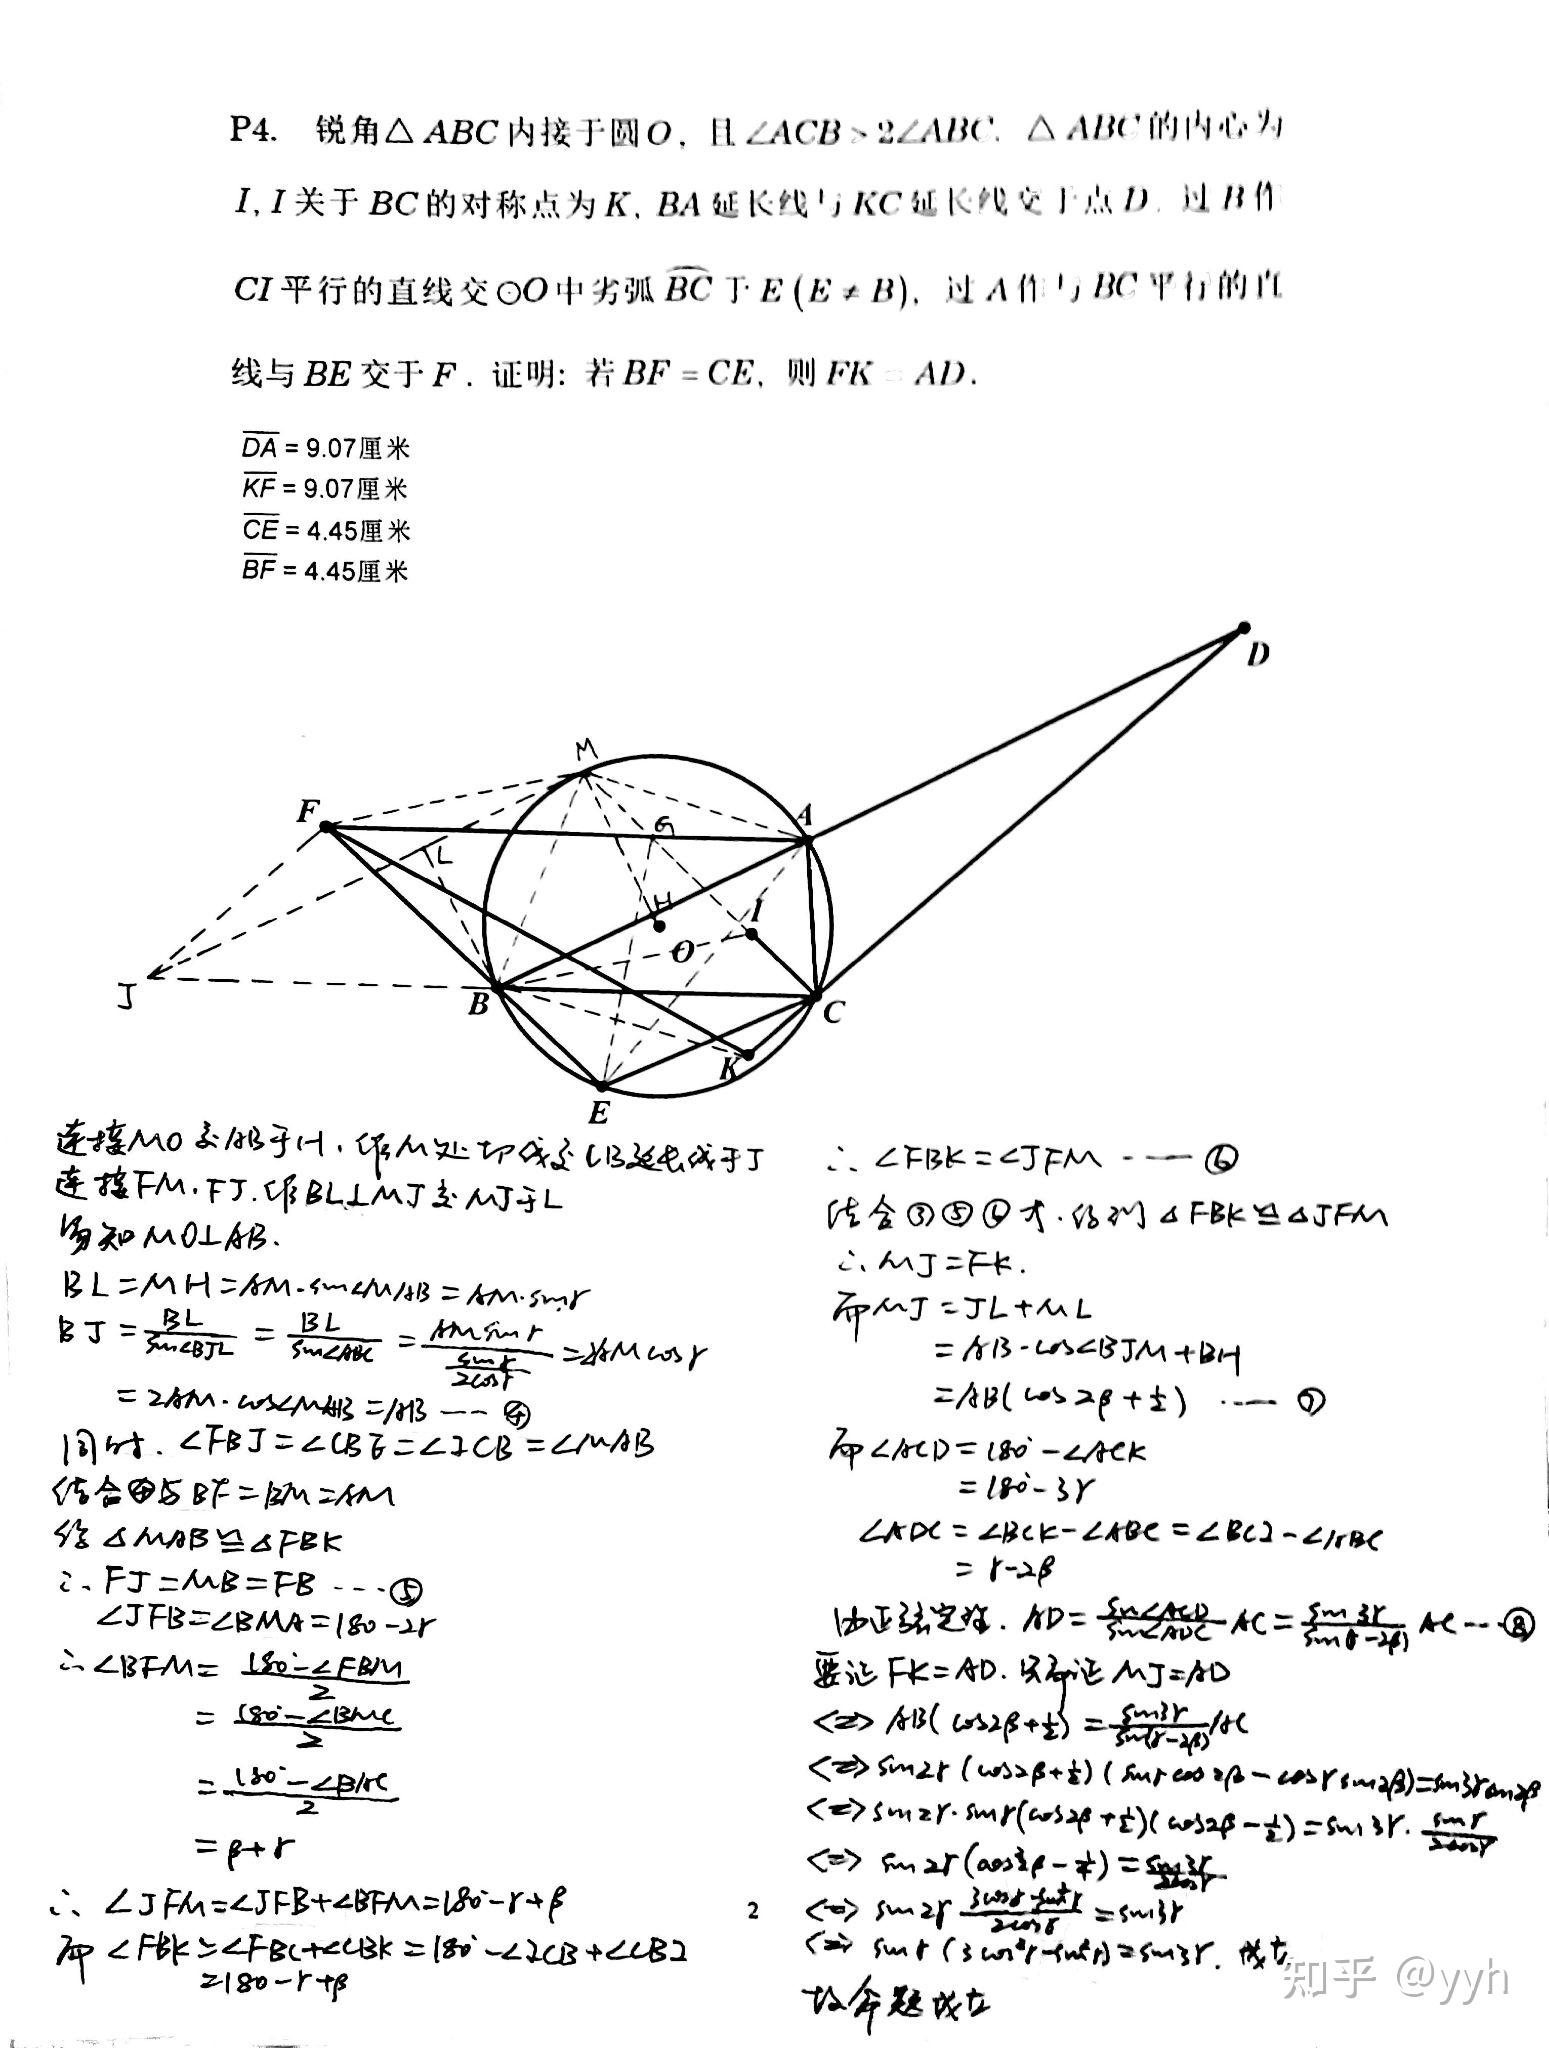 P4. 锐角△ABC内接于圆O,且∠ACB>2∠ABC.△ABC的内心为
I,I关于BC的对称点为K,BA延长线与KC延长线交于点D.过B作
CI平行的直线交⊙O中劣弧BC于E(E≠B),过A作与BC平行的直
线与BE交于F.证明:若BF=CE,则FK=AD.
DA = 9.07厘米
KF = 9.07厘米
CE = 4.45厘米
BF = 4.45厘米
D
M
F
A
G
L
H
I
O
J
B
C
K
E
连接MO交AB于H,作M处切线交CB延长线于J
连接FM,FJ.作BL⊥MJ交MJ于L
易知MO⊥AB.
BL=MH=AM·sin∠MAB=AM·sinγ
BJ=BL/sin∠BJL=BL/sin∠ABC=AMsinγ/(sinγ/2cosγ)=2AMcosγ
=2AM·cos∠MAB=AB ---④
同时,∠FBJ=∠CBE=∠ICB=∠MAB
结合④与BF=BM=AM
得△MAB≌△FBK
∴FJ=MB=FB ----⑤
∠JFB=∠BMA=180-2γ
∴∠BFM=(180°-∠FBM)/2
=(180°-∠BMC)/2
=(180°-∠BAC)/2
=β+γ
∴∠JFM=∠JFB+∠BFM=180°-γ+β
而∠FBK=∠FBC+∠CBK=180°-∠ICB+∠CBI
=180-γ+β
∴∠FBK=∠JFM ----⑥
结合③⑤⑥式,得到△FBK≌△JFM
∴MJ=FK.
而MJ=JL+ML
=AB·cos∠BJM+BH
=AB(cos2β+1/2) ----⑦
而∠ACD=180°-∠ACK
=180°-3γ
∠ADC=∠BCK-∠ABC=∠BCI-∠ABC
=γ-2β
由正弦定理,AD=(sin∠ACD/sin∠ADC)AC=(sin3γ/sin(γ-2β))AC---⑧
要证FK=AD.只需证MJ=AD
<=>AB(cos2β+1/2)=(sin3γ/sin(γ-2β))AC
<=>sin2γ(cos2β+1/2)(sinγcos2β-cosγsin2β)=sin3γsin2β
<=>sin2γ·sinγ(cos2β+1/2)(cos2β-1/2)=sin3γ·sinγ/2cosγ
<=>sin2γ(cos²2β-1/4)=sin3γ/2cosγ
<=>sin2γ
=sin3γ
<=>sinγ(3cos²γ-sin²γ)=sin3γ.成立.
故命题成立
2
知乎 @yyh